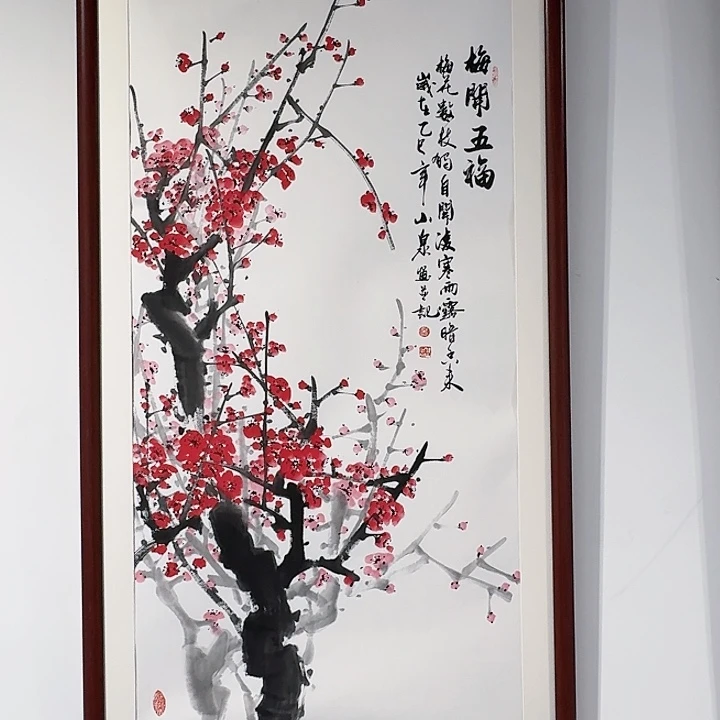 梅開五福
梅花數枝獨自開凌寒雨露暗香來
歲在乙巳年小泉畫並記